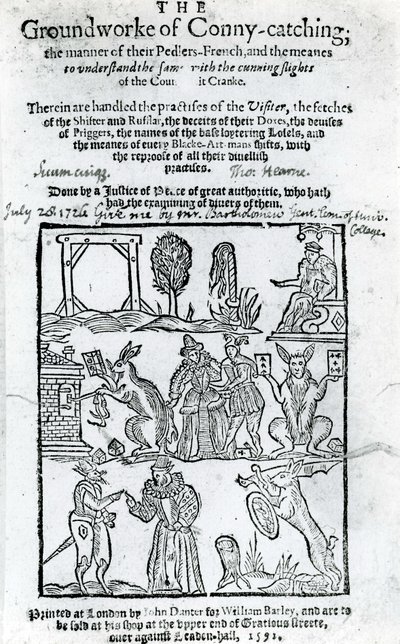 THE
Groundworke of Conny-catching;
the manner of their Pedlers-French, and the meanes
to vnderstand the same with the cunning slights
of the Coun it Cranke.
Therein are handled the practises of the Visiter, the fetches
of the Shifter and Rufflar, the deceits of their Doxes, the deuises
of Priggers, the names of the base loytering Losels, and
the meanes of euery Blacke-Art-mans shifts, with
the reproofe of all their diuellish
practises.
Suum cuiqz Tho: Hearne.
Done by a Justice of Peace of great authoritie, who hath
had the examining of diuers of them.
July 28. 1726 Give me by Mr. Bartholomew Gent. Com. of Univ.
College.
Printed at London by John Danter for William Barley, and are to
be sold at his shop at the vpper end of Gratious streete,
ouer against Leaden-hall, 1592.